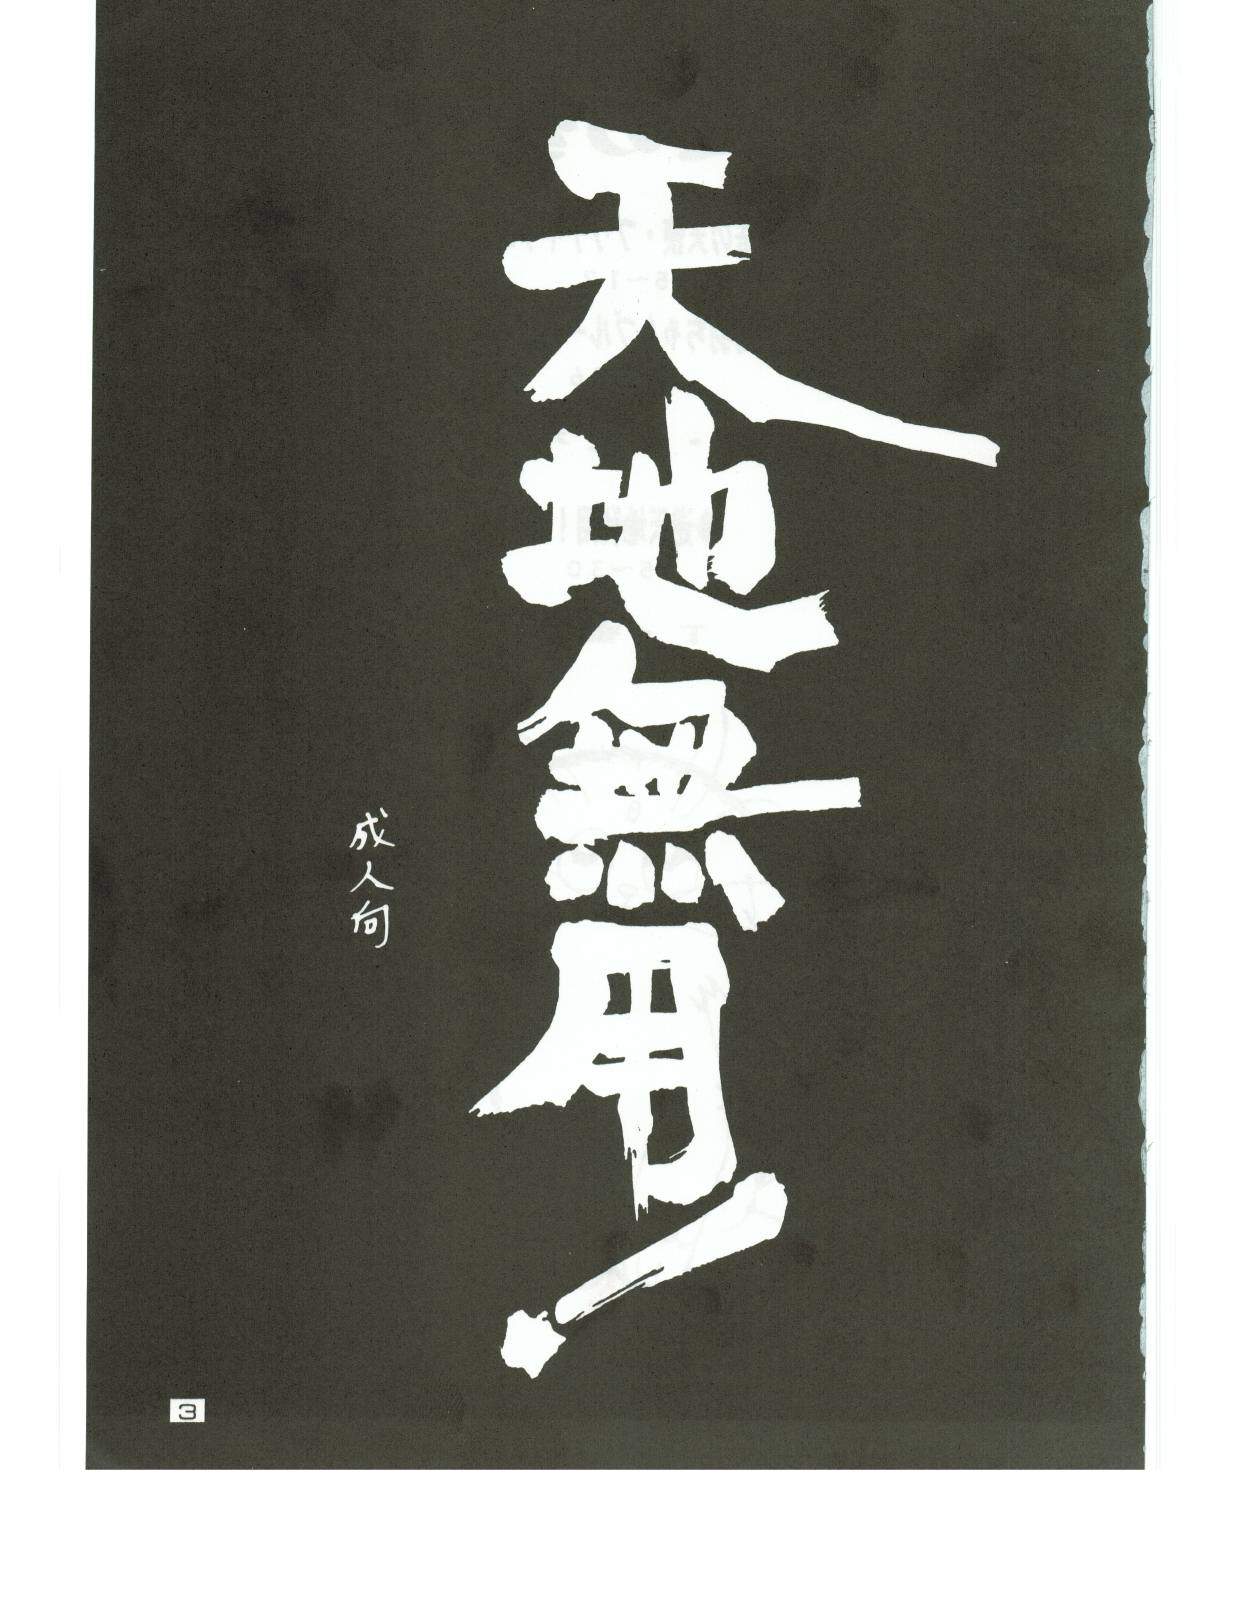 天地無用!
成人向
3